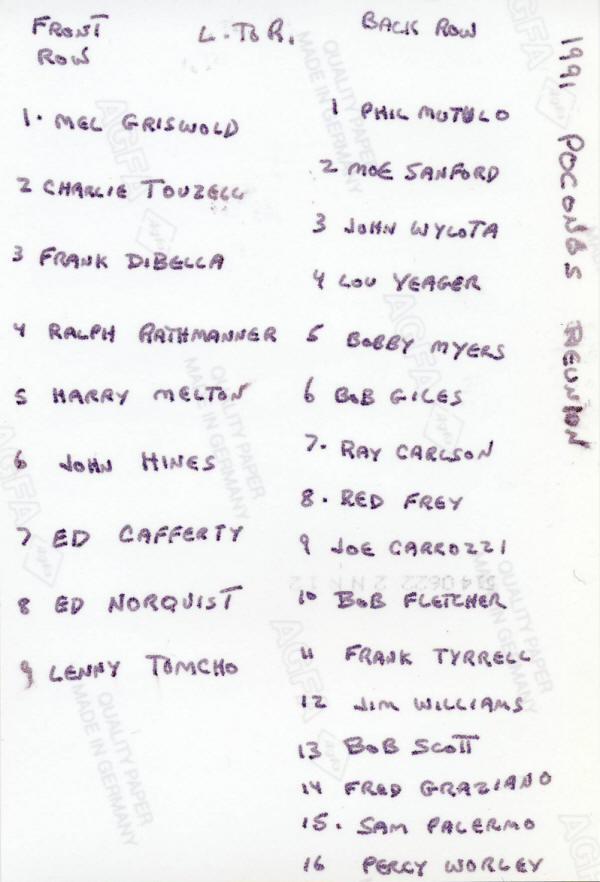 FRONT ROW
L. TO R.
BACK ROW
1. MEL GRISWOLD
2 CHARLIE TOUZELL
3 FRANK DIBELLA
4 RALPH RATHMANNER
5 HARRY MELTON
6 JOHN HINES
7 ED CAFFERTY
8 ED NORQUIST
9 LENNY TOMCHO
1 PHIL
2 MOE SANFORD
3 JOHN WYLOTA
4 LOU YEAGER
5 BOBBY MYERS
6 BOB GILES
7. RAY CARLSON
8. RED FREY
9 JOE CARROZZI
10 BOB FLETCHER
11 FRANK TYRRELL
12 JIM WILLIAMS
13 BOB SCOTT
14 FRED GRAZIANO
15. SAM PALERMO
16 PERCY WORLEY
1991 POCONOS REUNION
AGFA
QUALITY PAPER
MADE IN GERMANY
AGFA
QUALITY PAPER
MADE IN GERMANY
AGFA
QUALITY PAPER
MADE IN GERMANY
AGFA
QUALITY PAPER
MADE IN GERMANY
AGFA